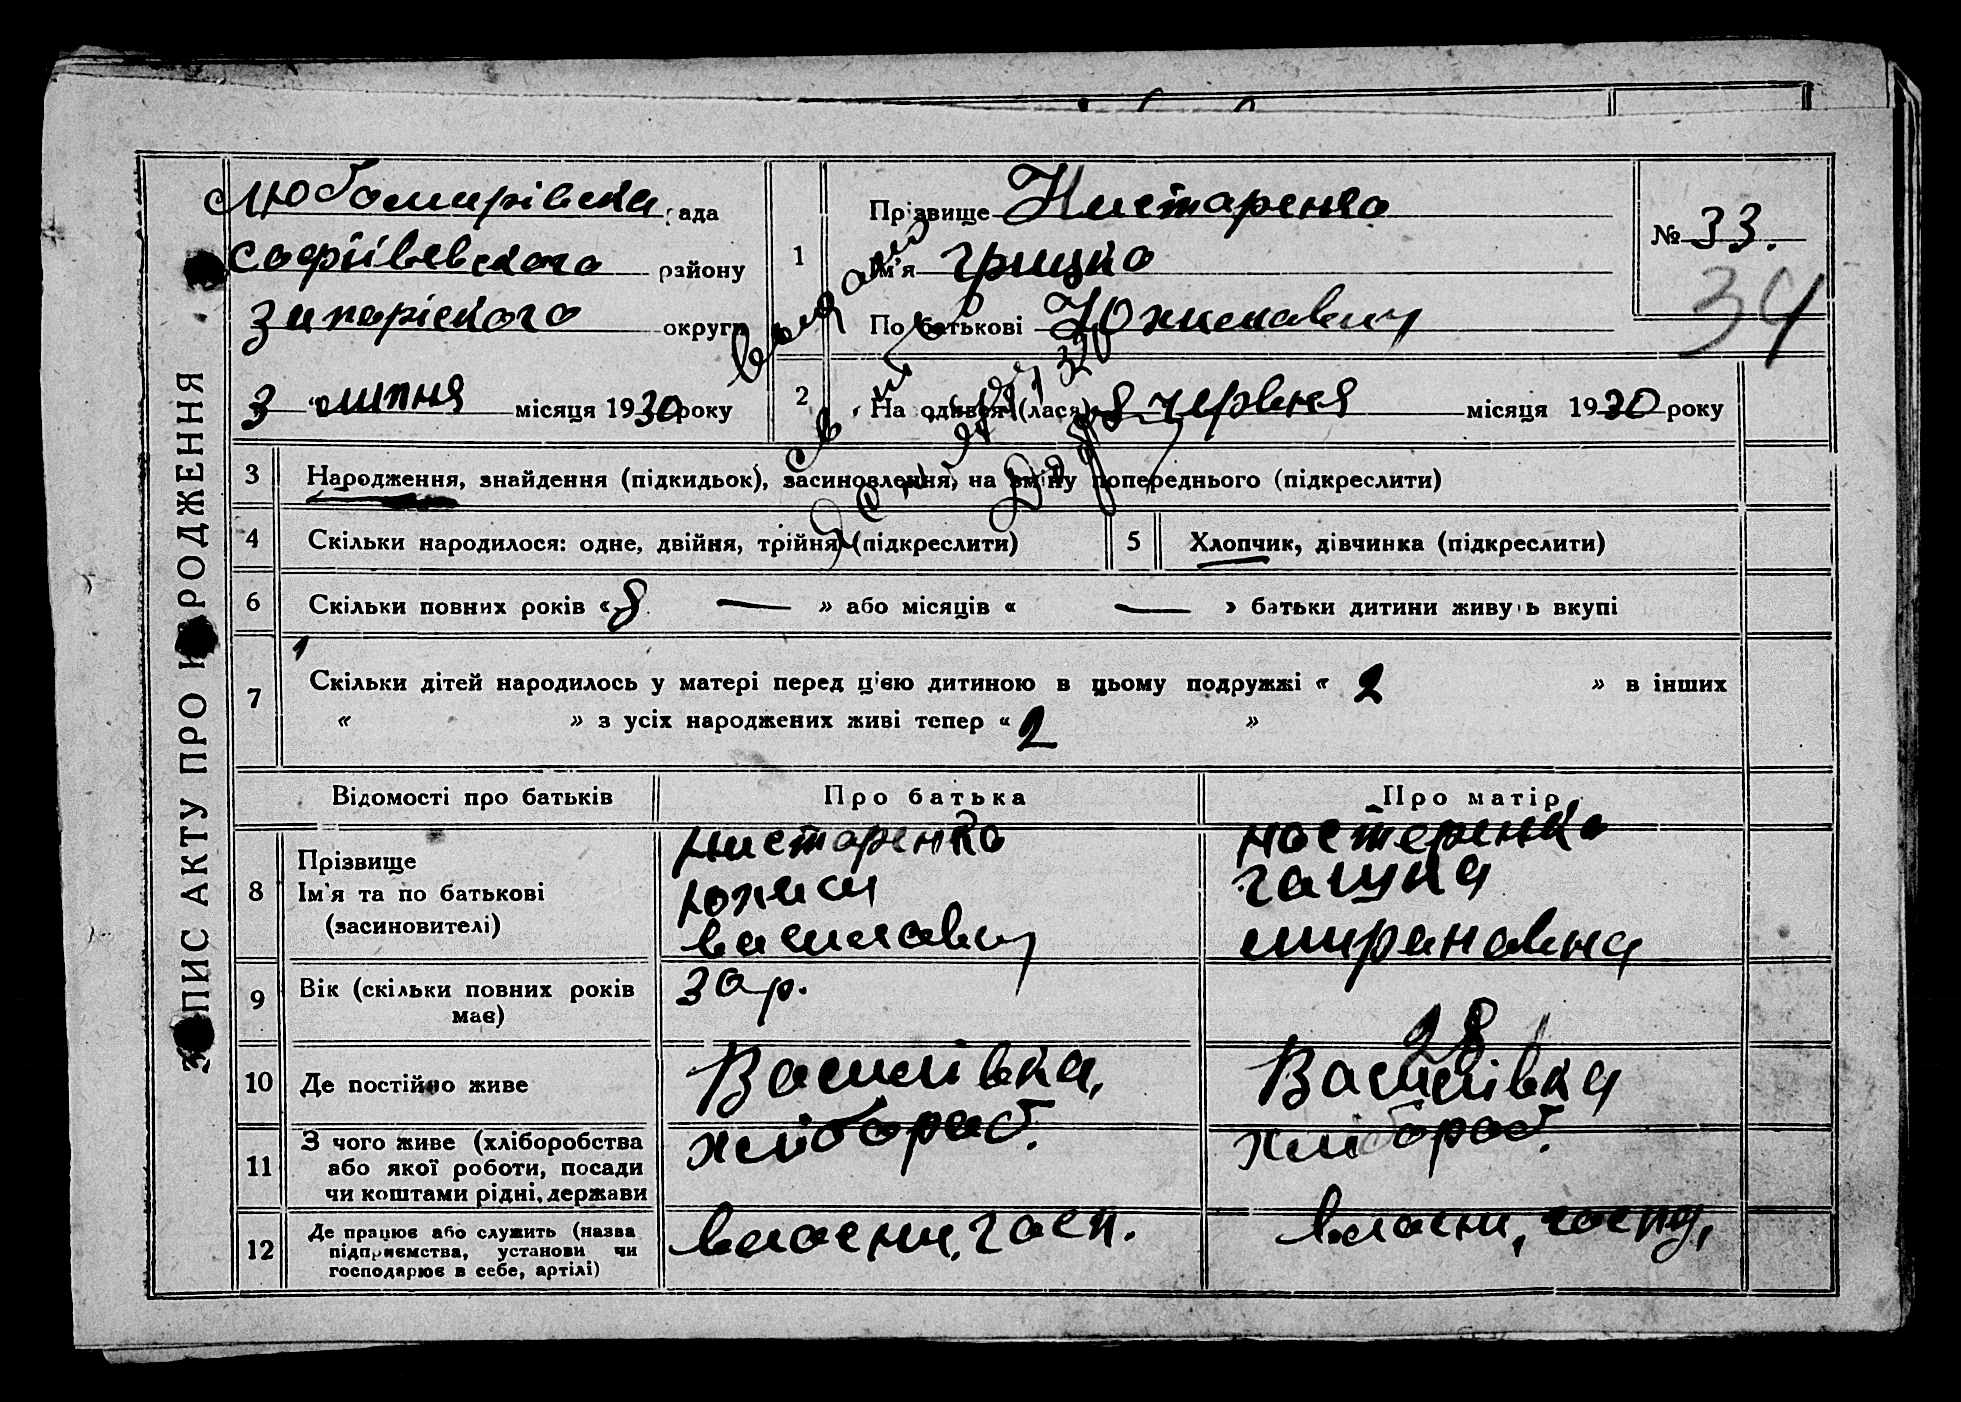 ЗАПИС АКТУ ПРО НАРОДЖЕННЯ
Любомирівска рада
Софіївевского району
Запорізкого округи
3 " липня місяця 1930 року
1
Прізвище Нистаренко
Ім'я Грицко
По батькові Юхимович
№ 33.
34
2
На одився (лася) 8 червня місяця 1930 року
3 Народження, знайдення (підкидьок), засиновлення, на зміну попереднього (підкреслити)
4 Скільки народилося: одне, двійня, трійня (підкреслити)
5 Хлопчик, дівчинка (підкреслити)
6 Скільки повних років « 8 — » або місяців « — » батьки дитини живуть вкупі
7 Скільки дітей народилось у матері перед ц'єю дитиною в цьому подружжі « 2 » в інших
« » з усіх народжених живі тепер « 2 »
Відомості про батьків Про батька Про матір
8
Прізвище
Ім'я та по батькові
(засиновителі)
Нистаренко
Юхим
Василович
Ностеренко
Галина
Мироновна
9 Вік (скільки повних років має)
30 р.
28
10 Де постійно живе
Василівка,
Василівка
11 З чого живе (хліборобства
або якої роботи, посади
чи коштами рідні, держави
хлібороб.
хлібороб.
12 Де працює або служить (назва
підприємства, установи чи
господарює в себе, артілі)
власни, госп.
власни, госпо,